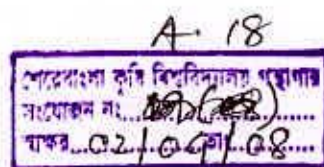 A. 18
শেরেবাংলা কৃষি বিশ্ববিদ্যালয় গন্থাগার
সংযোজন নং
স্বাক্ষর...02/04/08